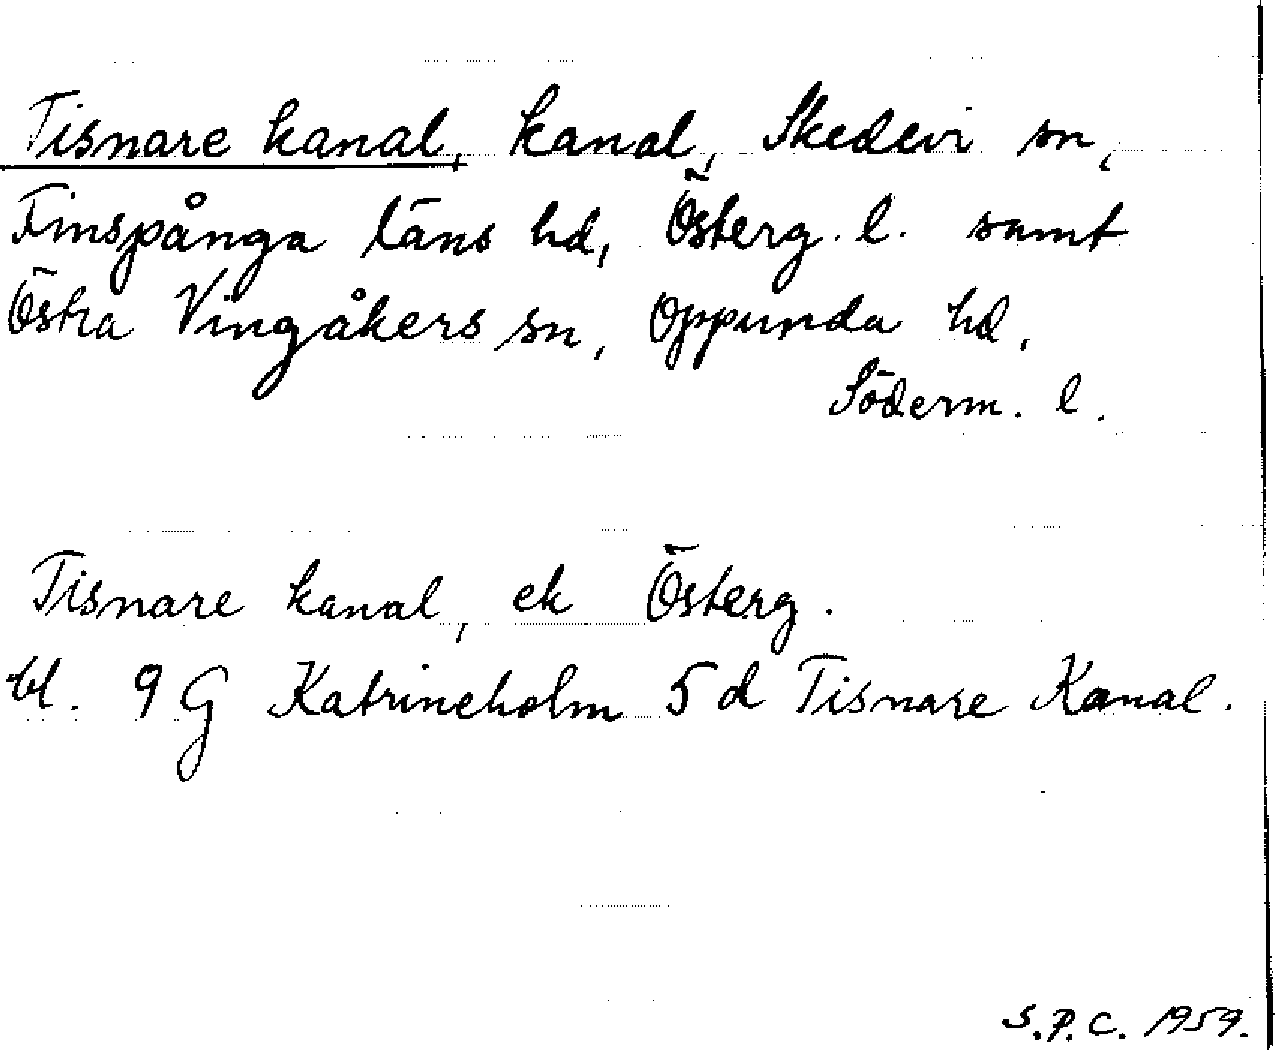 Tisnare kanal, kanal, Skedevi sn,
Finspånga läns hd, Österg. l. samt
Östra Vingåkers sn, Oppunda hd,
Söderm. l.
Tisnare kanal, ek Österg.
bl. 9 G Katrineholm 5 d Tisnare Kanal.
S.P.C. 1959.